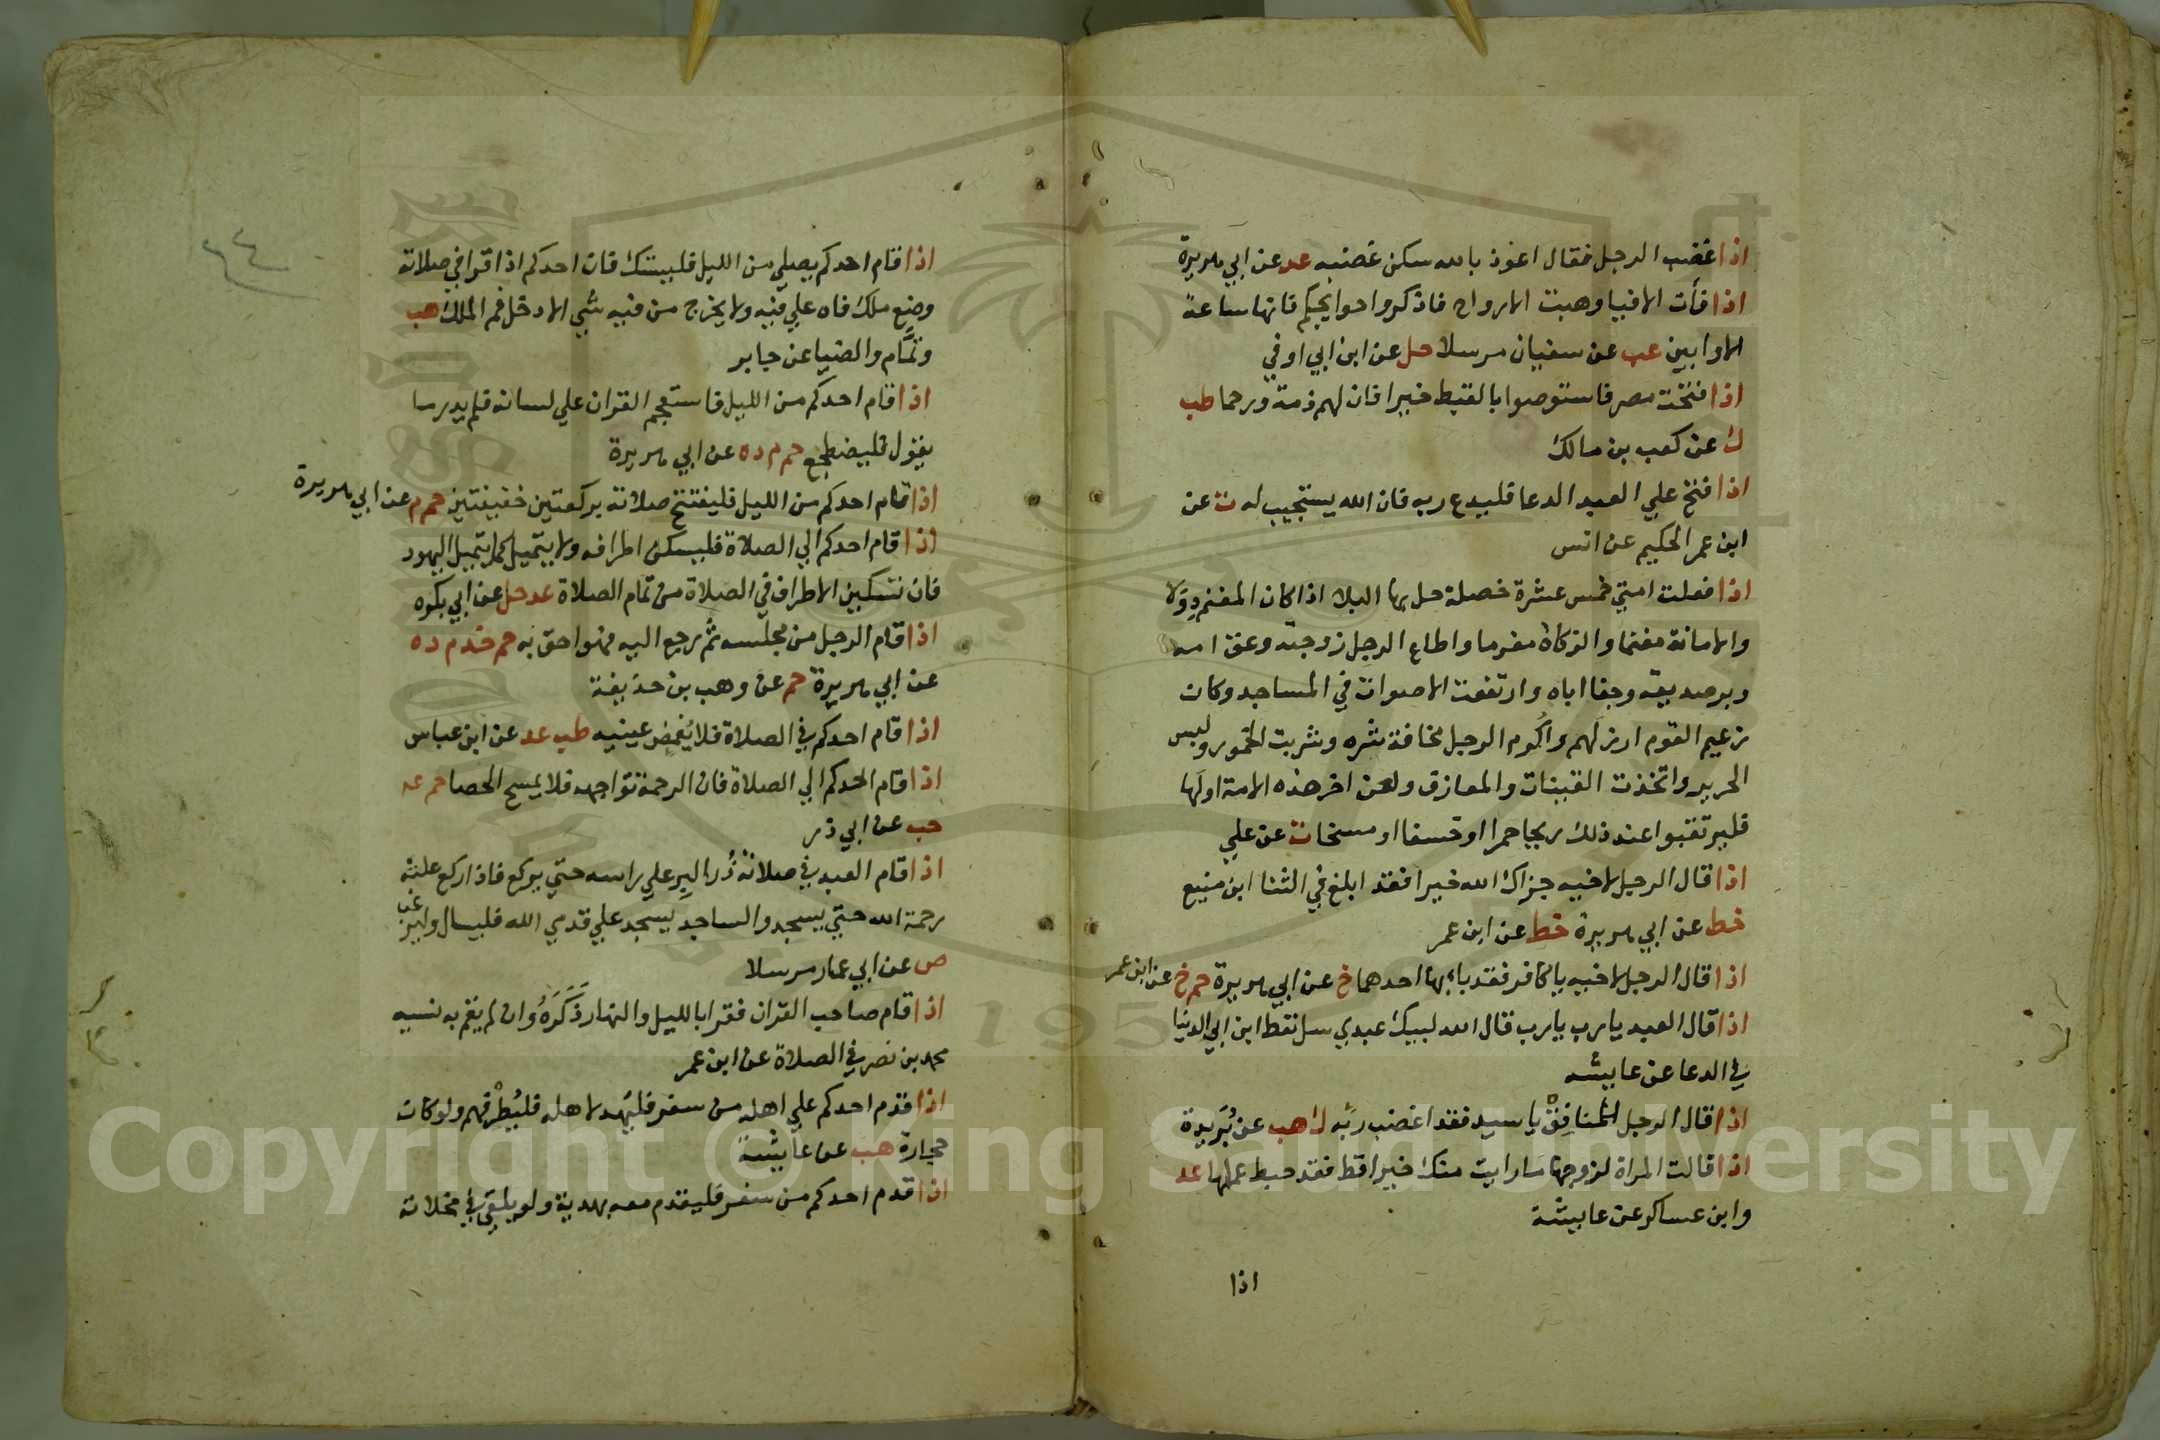 اذا غضب الرجل فقال اعوذ بالله سكن غضبه عد عن ابي هريرة
اذا فأت الافيا وهبت الارواح فاذكروا حوايجكم فانها ساعة
الاوابين عب عن سفيان مرسلا حل عن ابن ابي اوفي
اذا فتحت مصر فاستوصوا بالقبط خيرا فان لهم ذمة ورحما طب
ك عن كعب بن مالك
اذا فتح علي العبد الدعا فليدع ربه فان الله يستجيب له ت عن
ابن عمر الحكيم عن انس
اذا فعلت امتي خمس عشرة خصلة حل بها البلا اذا كان المغنم دولا
والامانة مغنما والزكاة مغرما واطاع الرجل زوجته وعق امه
وبر صديقه وجفا اباه وارتفعت الاصوات في المساجد وكان
زعيم القوم ارذلهم واكرم الرجل مخافة شره وشربت الخمور ولبس
الحرير واتخذت القينات والمعازف ولعن اخر هذه الامة اولها
فليرتقبوا عند ذلك ريحا حمرا او خسفا او مسخا ت عن علي
اذا قال الرجل لاخيه جزاك الله خيرا فقد ابلغ في الثنا ابن منيع
خط عن ابي هريرة خط عن ابن عمر
اذا قال الرجل لاخيه يا كافر فقد باء بها احدهما خ عن ابي هريرة حم خ عن ابن عمر
اذا قال العبد يارب يارب قال الله لبيك عبدي سل تعط ابن ابي الدنيا
في الدعا عن عايشه
اذا قال الرجل للمنافق يا سيد فقد اغضب ربه ك هب عن بريدة
اذا قالت المراة لزوجها ما رايت منك خيرا قط فقد حبط عملها عد
وابن عساكر عن عايشة
اذا
اذا قام احدكم يصلي من الليل فليستك فان احدكم اذا قرا في صلاته
وضع ملك فاه علي فيه ولا يخرج من فيه شي الا دخل فم الملك هب
وتمام والضيا عن جابر
اذا قام احدكم من الليل فاستعجم القران علي لسانه فلم يدر ما
يقول فليضطجع حم م د ه عن ابي هريرة
اذا قام احدكم من الليل فليفتتح صلاته بركعتين خفيفتين حم م عن ابي هريرة
اذا قام احدكم الي الصلاة فليسكن اطرافه ولا يتميل كما يتميل اليهود
فان تسكين الاطراف في الصلاة من تمام الصلاة عد حل عن ابي بكره
اذا قام الرجل من مجلسه ثم رجع اليه فهو احق به حم خد م د ه
عن ابي هريرة حم عن وهب بن حذيفة
اذا قام احدكم في الصلاة فلا يغمض عينيه طب عد عن ابن عباس
اذا قام احدكم الي الصلاة فان الرحمة تواجهه فلا يمسح الحصا حم عه
حب عن ابي ذر
اذا قام العبد في صلاته ذر البر علي راسه حتي يركع فاذا ركع علته
رحمة الله حتي يسجد والساجد يسجد علي قدمي الله فليسال وليرغب
ص عن ابي عمار مرسلا
اذا قام صاحب القران فقرا بالليل والنهار ذكره وان لم يقم به نسيه
محمد بن نصر في الصلاة عن ابن عمر
اذا قدم احدكم علي اهله من سفر فليهد لاهله فليطرفهم ولو كان
حجارة هب عن عايشة
اذا قدم احدكم من سفر فليقدم معه بهدية ولو يلقي في مخلاته
Copyright © King Saud University
195